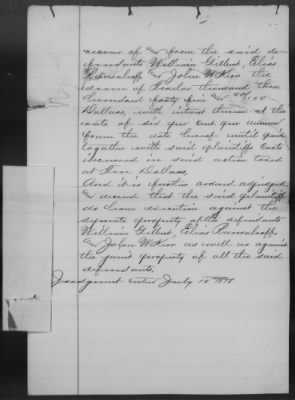 recover of and from the said de-
fendants William Gilbert, Elias
and John W Kior the
sum of Twelve thousand three
hundred forty five and 00/100
Dollars, with interest thereon at the
rate of six per cent per annum
from the date hereof until paid
together with said plaintiffs costs
incurred in said action taxed
at Five Dollars.
And it is further ordered adjudged
and decreed that the said plaintiff
do have execution against the
separate property of the defendants
William Gilbert, Elias
and John W Kior as well as against
the joint property of all the said
defendants.
Judgment entered July 10 1878